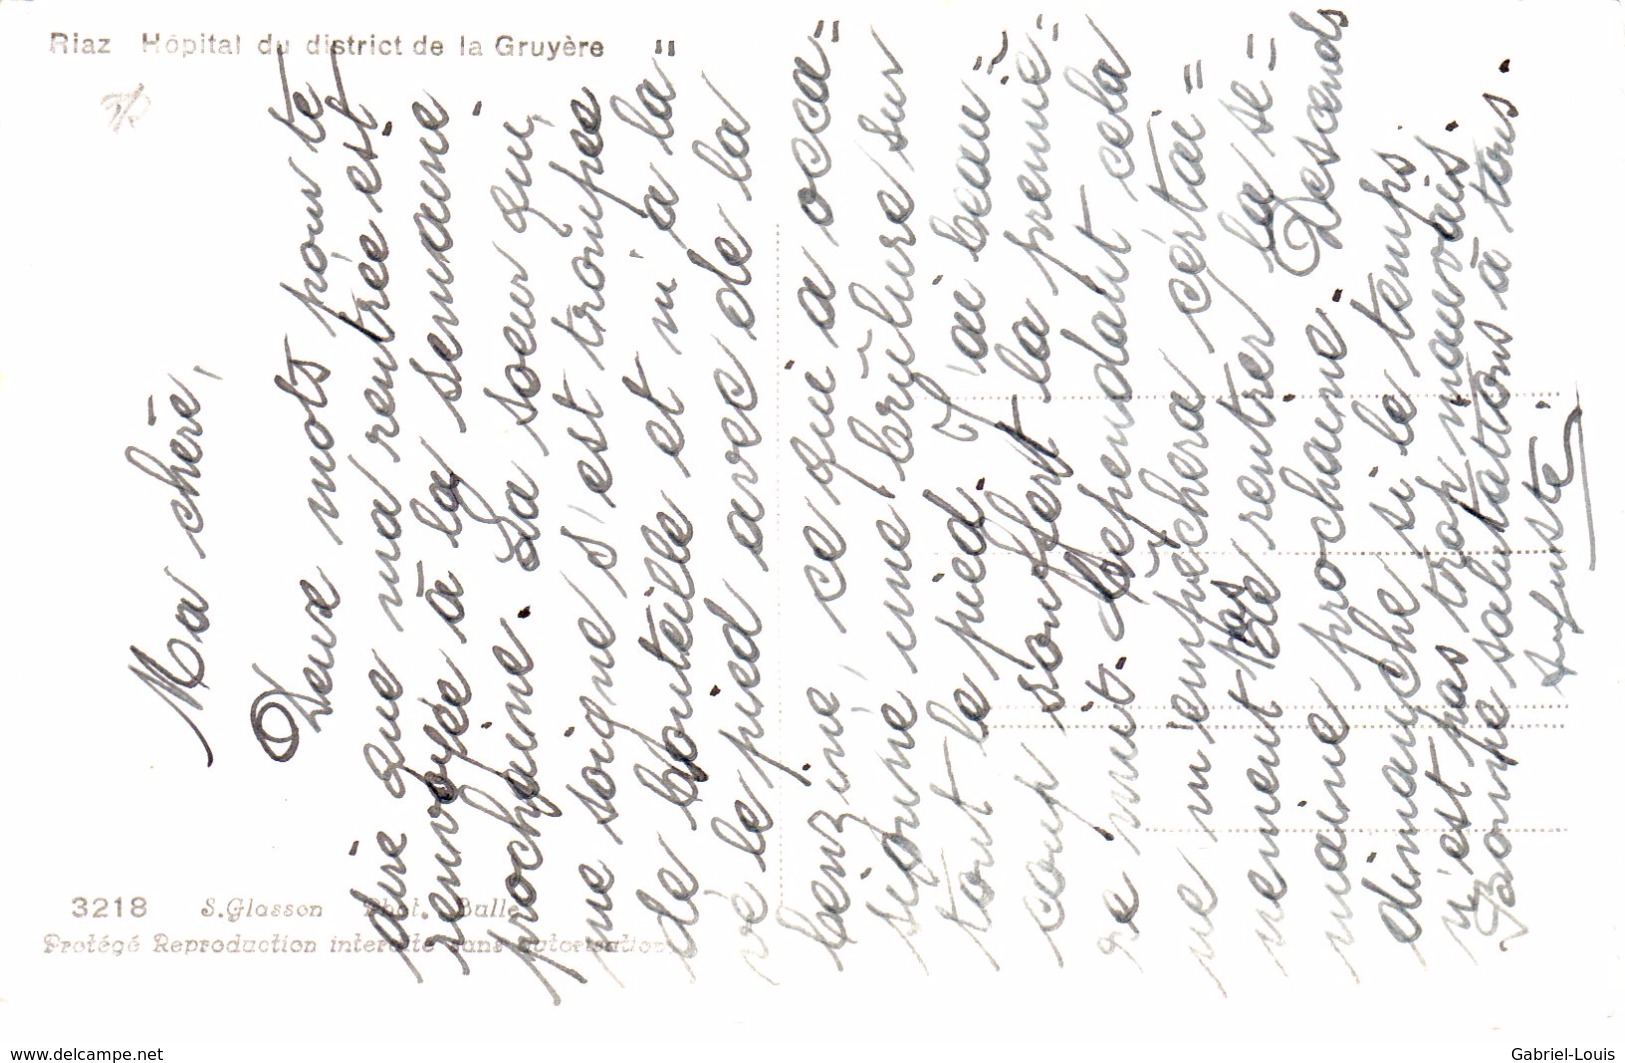 Riaz Hôpital du district de la Gruyère
Ma chère,
Deux mots pour te
dire que ma rentrée est
renvoyée à la semaine
prochaine. La soeur qui
me soigne s'est trompée
de bouteille et m'a la"
vé le pied avec de la
benzine, ce qui a occa"
sionné une brûlure sur
tout le pied. J'ai beau"
coup souffert la premiè"
re nuit. Cependant cela
ne m'empêchera certai"
nement pas de rentrer la se"
maine prochaine. Descends
dimanche si le temps
n'est pas trop mauvais.
Bonnes salutations à tous.
Auguste
3218 S. Glasson Phot. Bulle
Protégé Reproduction interdite sans autorisation
www.delcampe.net
Gabriel-Louis